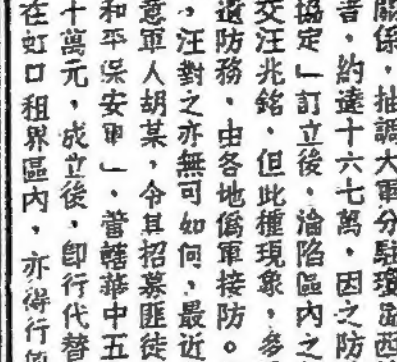 關係，抽調大軍分駐瓊
者，約達十六七萬，因之防
協定」訂立後，淪陷區內之
交汪兆銘，但此種現象，多
遺防務，由各地僞軍接防。
，汪對之亦無可如何，最近
意軍人胡某，令其招募匪徒
和平保安軍」，當轄華中五
十萬元，成立後，即行代替
在虹口租界區內，亦得行